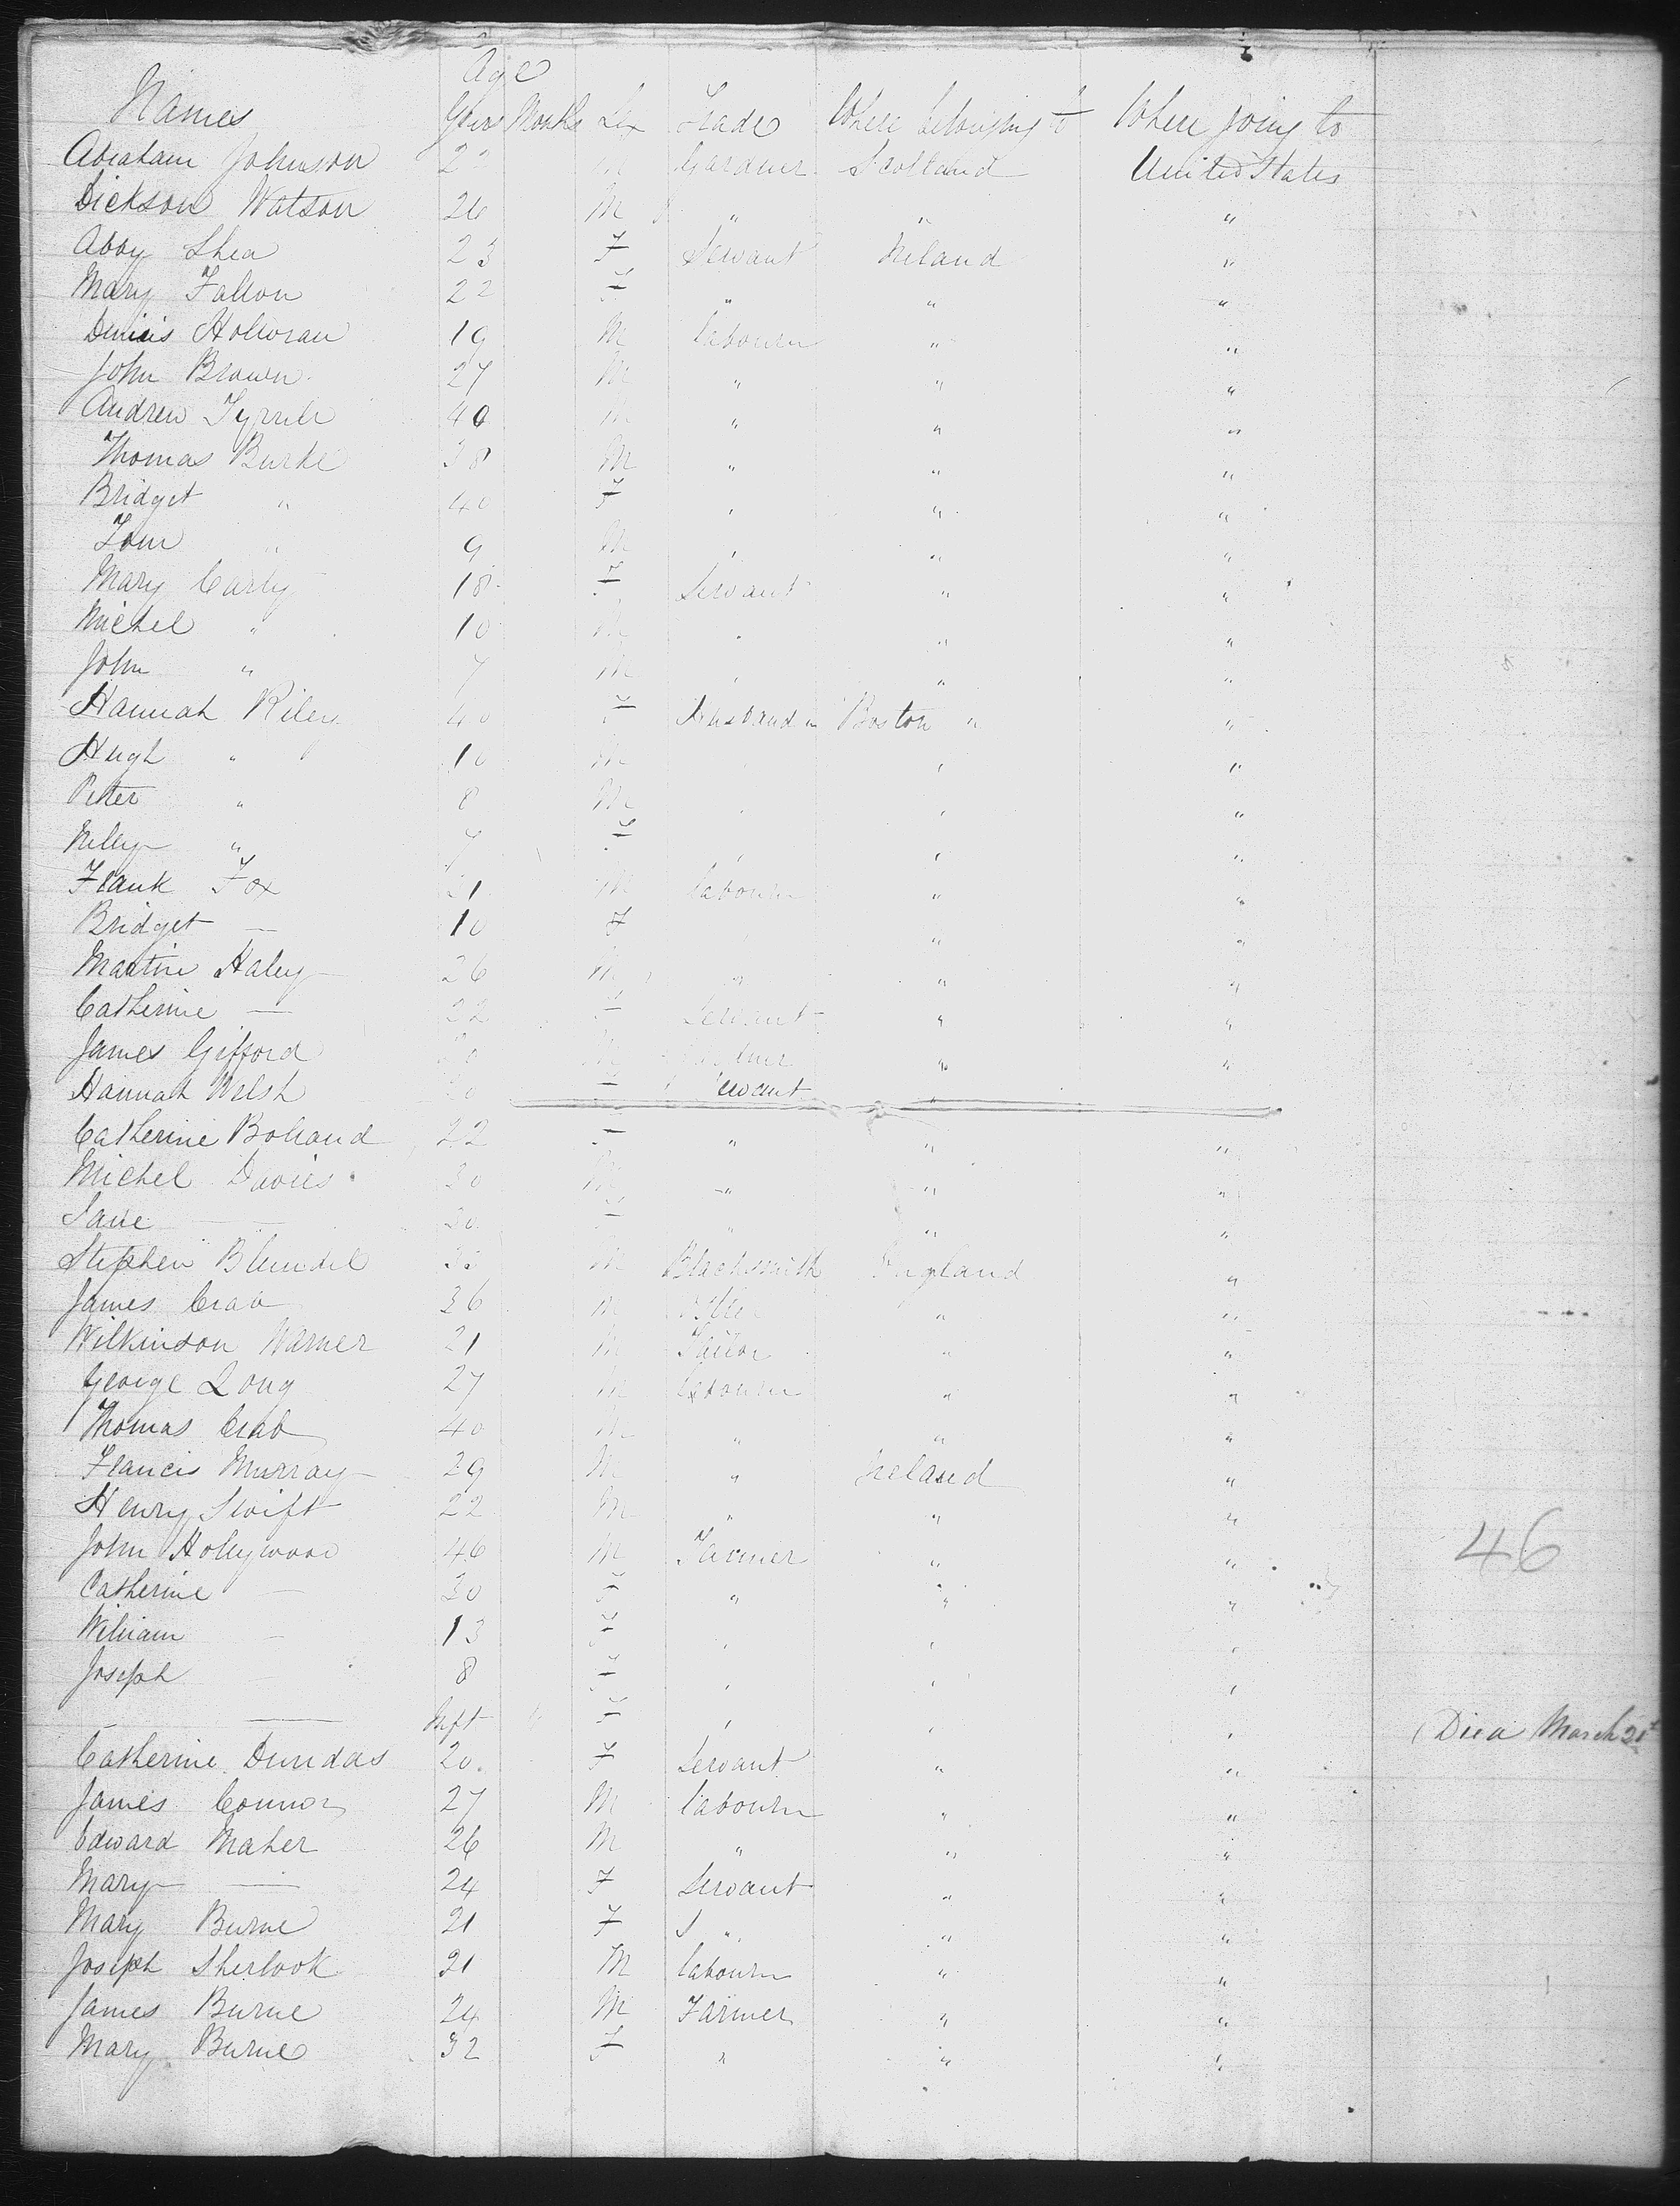 Age
Names Years Months Sex Trade Where belonging to Where going to
Abraham Johnson 22 M Gardner Scotland United States
Dickson Watson 26 M " " "
Abby Shea 23 F Servant Ireland "
Mary Fallon 22 F " " "
Dennis Holloran 19 M labourer " "
John Brown 27 M " " "
Andrew 40 M " " "
Thomas Burke 38 M " " "
Bridget " 40 F " " "
Tom " 9 M " " "
Mary Carty 18 F Servant " "
Michel " 10 M " " "
John " 7 M " " "
Hannah Riley 40 F Husband in Boston " "
Hugh " 10 M " " "
Peter " 8 M " " "
Nelly " 7 F " " "
Frank Fox 21 M labourer " "
Bridget — 10 F " "
Martin Haley 26 M " " "
Catherine — 22 F Servant " "
James Gifford M " "
Hannah Welsh 20 F Servant
Catherine Bolland 22 F " " "
Michel Davies 30 M " " "
Jane — 30 F " " "
Stephen Blundel M Blacksmith England "
James Crab 36 M "  "
Wilkinson Warner 21 M Tailor " "
George Long 27 M labourer " "
Thomas Crab 40 M " " "
Francis Murray 29 M " Ireland "
Henry Swift 22 M " " "
John Hollywood 46 M Farmer " " 46
Catherine — 30 F " " "
William — 13 F " " "
Joseph — 8 F " " "
— Inft " F " " " Died March 21st
Catherine Dundas 20 F Servant " "
James Connor 27 M labourer " "
Edward Maher 26 M " " "
Mary — 24 F Servant " "
Mary Burne 21 F S " " "
Joseph Sherlook 21 M labourer " "
James Burne 24 M Farmer " "
Mary Burne 32 F " " "